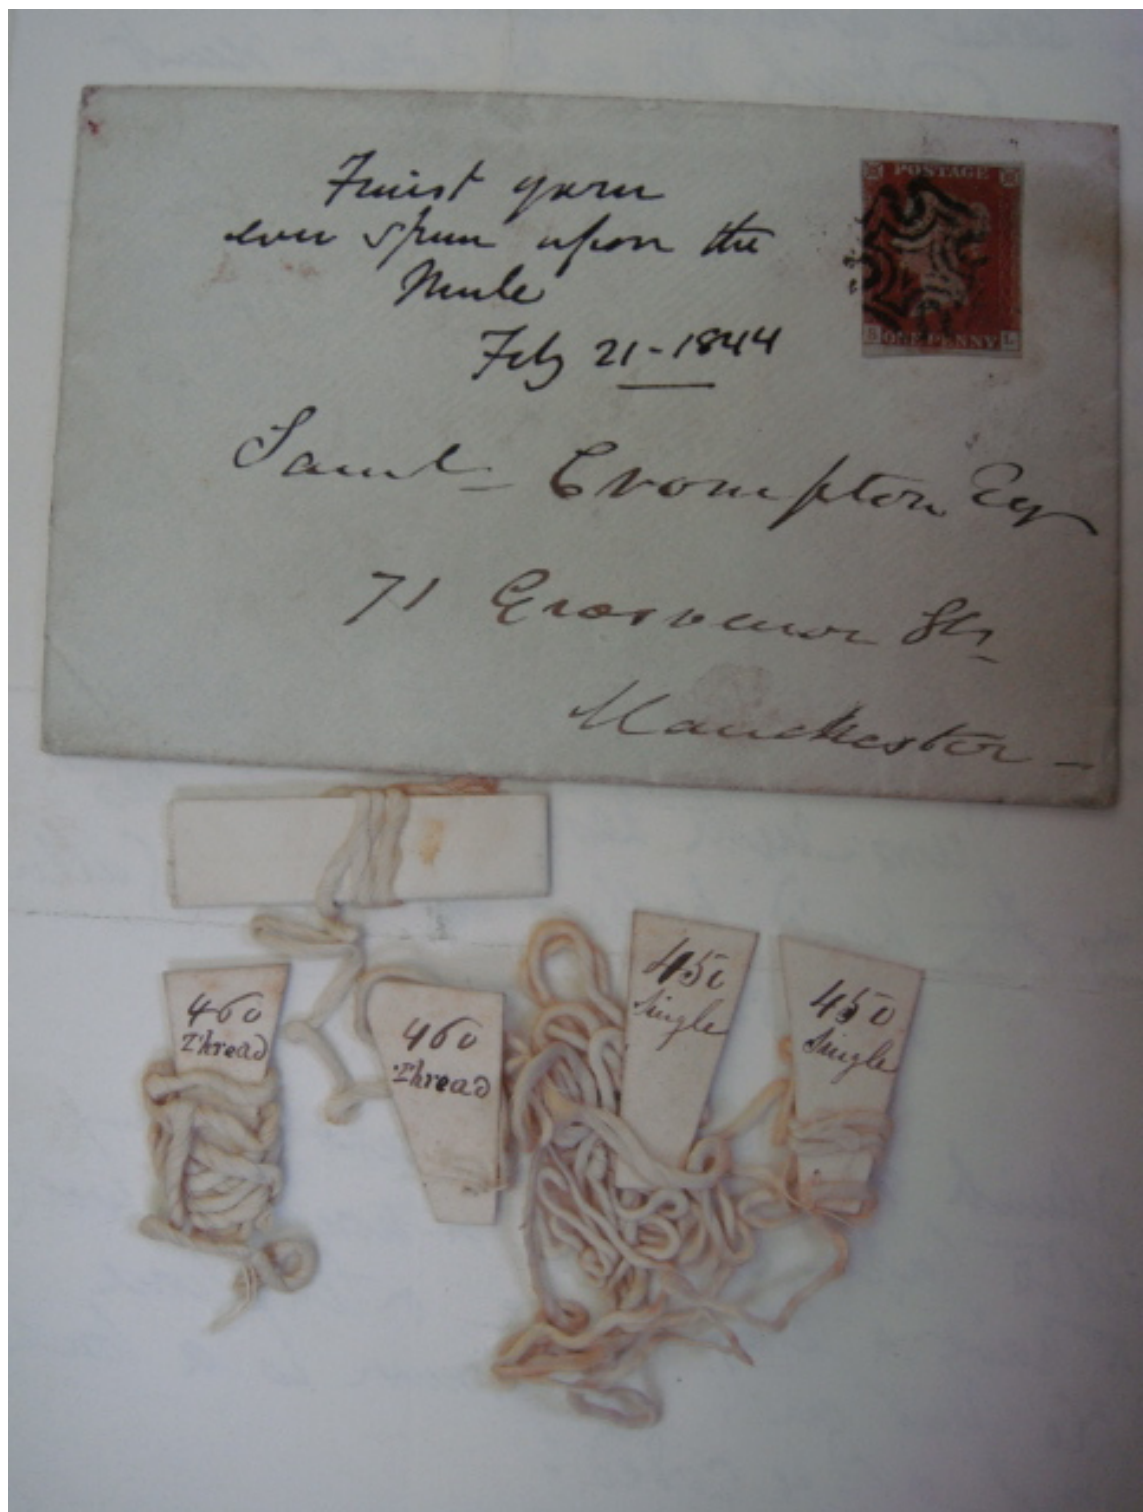 Finest yarn
ever spun upon the
Mule
Feby 21-1844
POSTAGE
S ONE PENNY L
Saml Crompton Esq
71 Grosvenor St
Manchester -
460
Thread
460
Thread
450
Single
450
Single